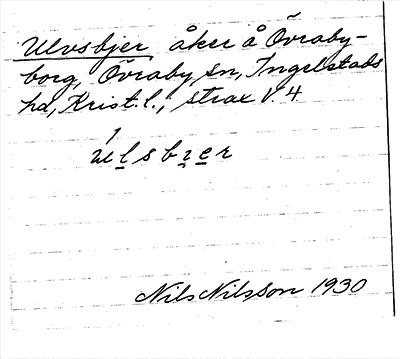 Ulvsbjer åker å Övraby-
borg, Övraby sn, Ingelstads
hd, Krist. l.; strax V. 4
ulsbɪer
Nils Nilsson 1930